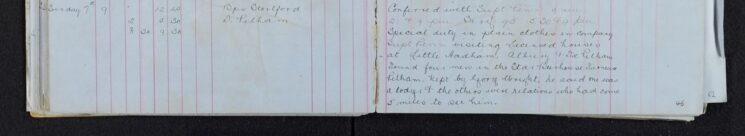 Sunday 7th 9 12 20 Bps Stortford
2 5 30 B. Pelham
8 30 9 30
Conferred with Supt
2 & 9 pm 5.30 & 9 pm
Special duty in plain clothes in company
Supt visiting licensed houses
at Little Hadham, Albury & Pelham
Found four men in the Star Beerhouse Furneux
Pelham, kept by Georg Wright, he said one was
a lodger & the others were relations who had come
5 miles to see him.
46